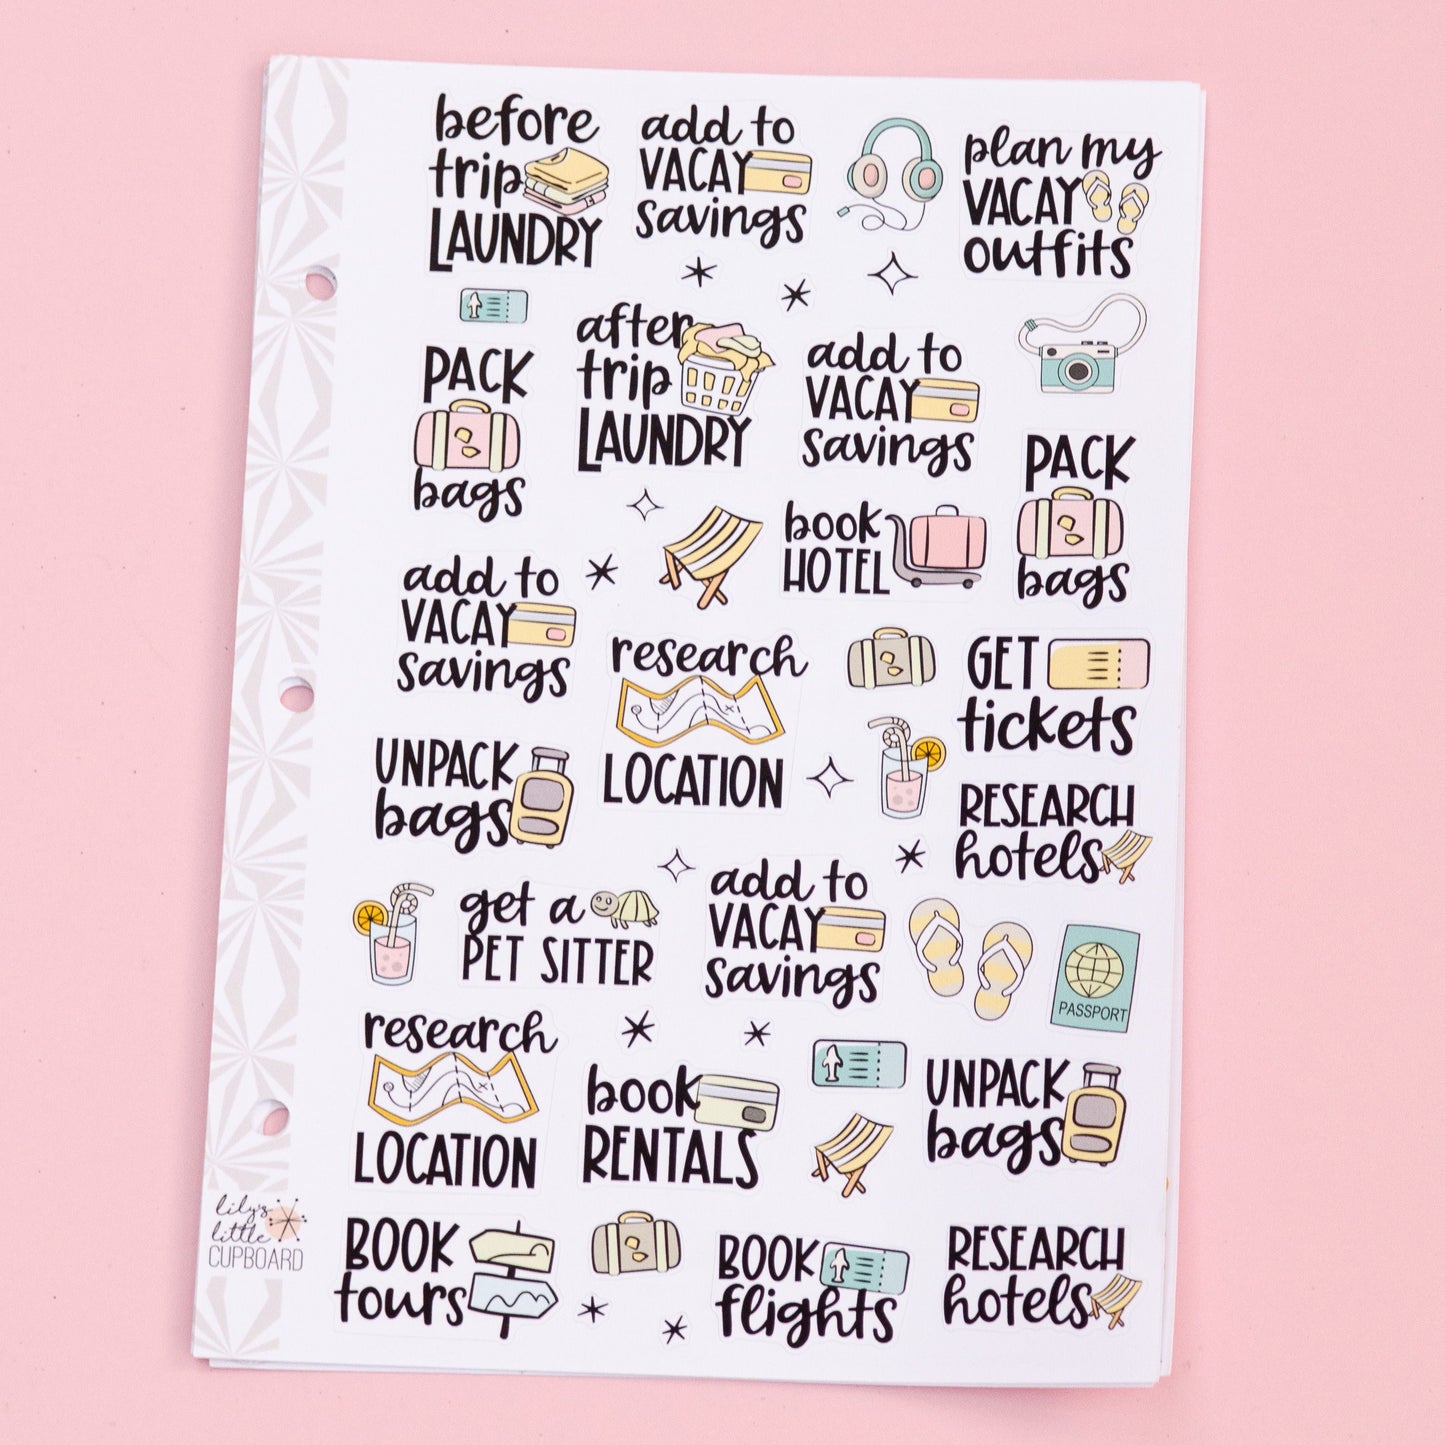 before
trip
LAUNDRY
add to
VACAY
savings
plan my
VACAY
outfits
PACK
bags
after
trip
LAUNDRY
add to
VACAY
savings
PACK
bags
book
HOTEL
add to
VACAY
savings
research
LOCATION
GET
tickets
UNPACK
bags
RESEARCH
hotels
get a
PET SITTER
add to
VACAY
savings
PASSPORT
research
LOCATION
book
RENTALS
UNPACK
bags
lily's
little
CUPBOARD
BOOK
tours
BOOK
flights
RESEARCH
hotels